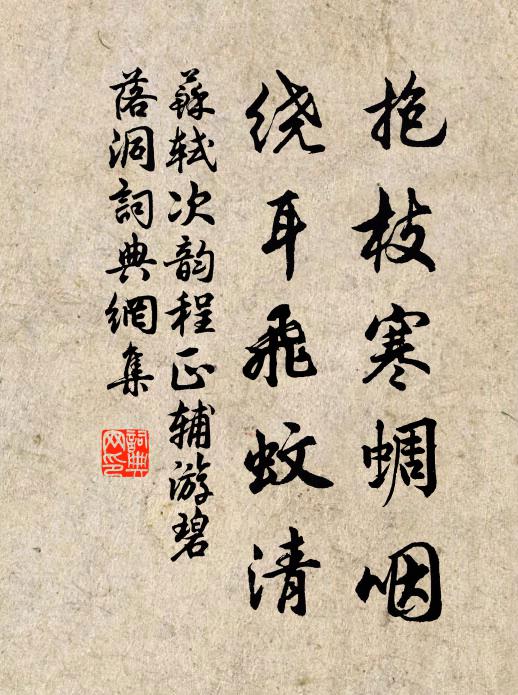 抱枝寒蜩咽
绕耳飛蚊清
蘇轼次韵程正辅游碧
落洞詞典網集
詞典网印